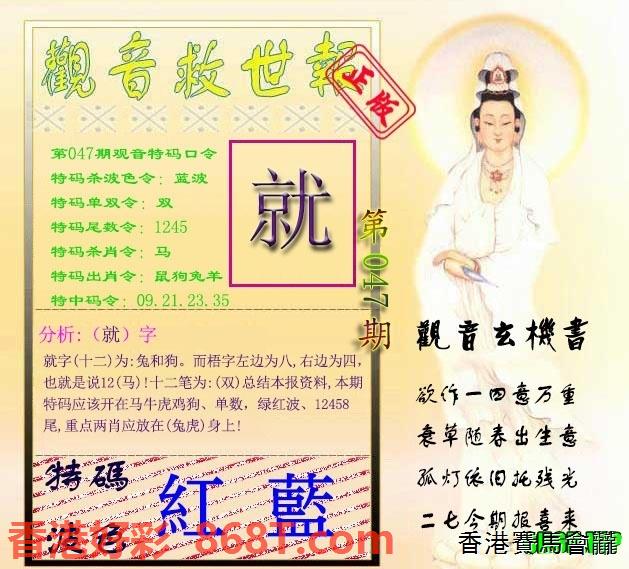 觀音救世報
正版
第047期观音特码口令
特码杀波色令：蓝波
特码单双令：双
特码尾数令：1245
特码杀肖令：马
特码出肖令：鼠狗兔羊
特中码令：09.21.23.35
就
第047期
分析:（就）字
就字(十二)为:兔和狗。而梧字左边为八,右边为四,
也就是说12(马)!十二笔为:(双)总结本报资料,本期
特码应该开在马牛虎鸡狗、单数，绿红波、12458
尾,重点两肖应放在(兔虎)身上!
觀音玄機書
欲作一四意万重
衰草随春出生意
孤灯依旧托残光
二七今期报喜来
特碼
波色
紅 藍
香港好彩 8687.com
香港賽馬會